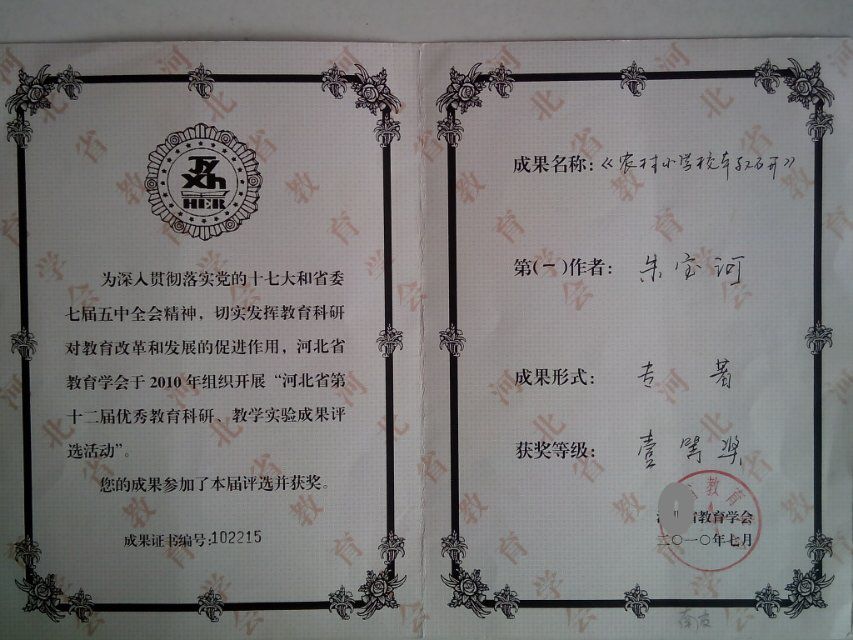 HER
为深入贯彻落实党的十七大和省委
七届五中全会精神，切实发挥教育科研
对教育改革和发展的促进作用，河北省
教育学会于 2010 年组织开展“河北省第
十二届优秀教育科研、教学实验成果评
选活动”。
您的成果参加了本届评选并获奖。
成果证书编号:102215
成果名称:《农村小学校本教研》
第(一)作者: 朱宝河
成果形式: 专 著
获奖等级: 壹等奖
省教育学会
二〇一〇年七月